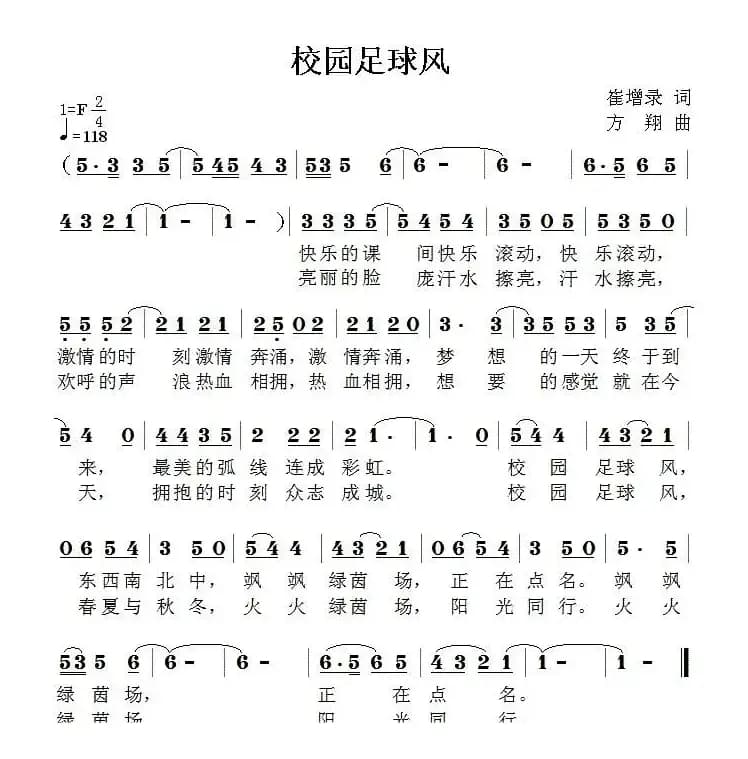 校园足球风
1=F 2/4
崔增录 词
♩=118
方 翔 曲
(5·3 3 5 | 5 45 4 3 | 53 5 6 | 6 - | 6 - | 6·5 6 5 |
4 3 2 1 | 1 - | 1 - ) | 3 3 3 5 | 5 4 5 4 | 3 5 0 5 | 5 3 5 0 |
快乐的课 间快乐 滚动，快 乐滚动，
亮丽的脸 庞汗水 擦亮，汗 水擦亮，
5 5 5 2 | 2 1 2 1 | 2 5 0 2 | 2 1 2 0 | 3· 3 | 3 5 5 3 | 5 3 5 |
激情的时 刻激情 奔涌，激 情奔涌， 梦 想 的一天 终于到
欢呼的声 浪热血 相拥，热 血相拥， 想 要 的感觉 就在今
5 4 0 | 4 4 3 5 | 2 2 2 | 2 1· | 1· 0 | 5 4 4 | 4 3 2 1 |
来， 最美的弧 线 连成 彩虹。 校 园 足球 风，
天， 拥抱的时 刻 众志 成城。 校 园 足球 风，
0 6 5 4 | 3 5 0 | 5 4 4 | 4 3 2 1 | 0 6 5 4 | 3 5 0 | 5· 5 |
东西南 北 中， 飒 飒 绿茵 场， 正 在点 名。 飒 飒
春夏与 秋 冬， 火 火 绿茵 场， 阳 光同 行。 火 火
53 5 6 | 6 - | 6 - | 6·5 6 5 | 4 3 2 1 | 1 - | 1 - ‖
绿 茵 场， 正 在 点 名。
绿 茵 场 阳 光 同 行